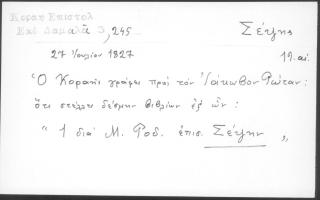 Κοραη Επιστολ
Εκδ Δαμαλᾶ 3, 245
Σέτζης
27 Ἰουλίου 1827
19. αἰ.
Ὁ Κοραῆς γράφει πρὸς τὸν Ἰάκωβον Ρώταν:
ὅτι στέλλει δέσμην βιβλίων ἐξ ὧν:
" 1 διὰ Μ. Ροδ. ἐπισ. Σέτζην "